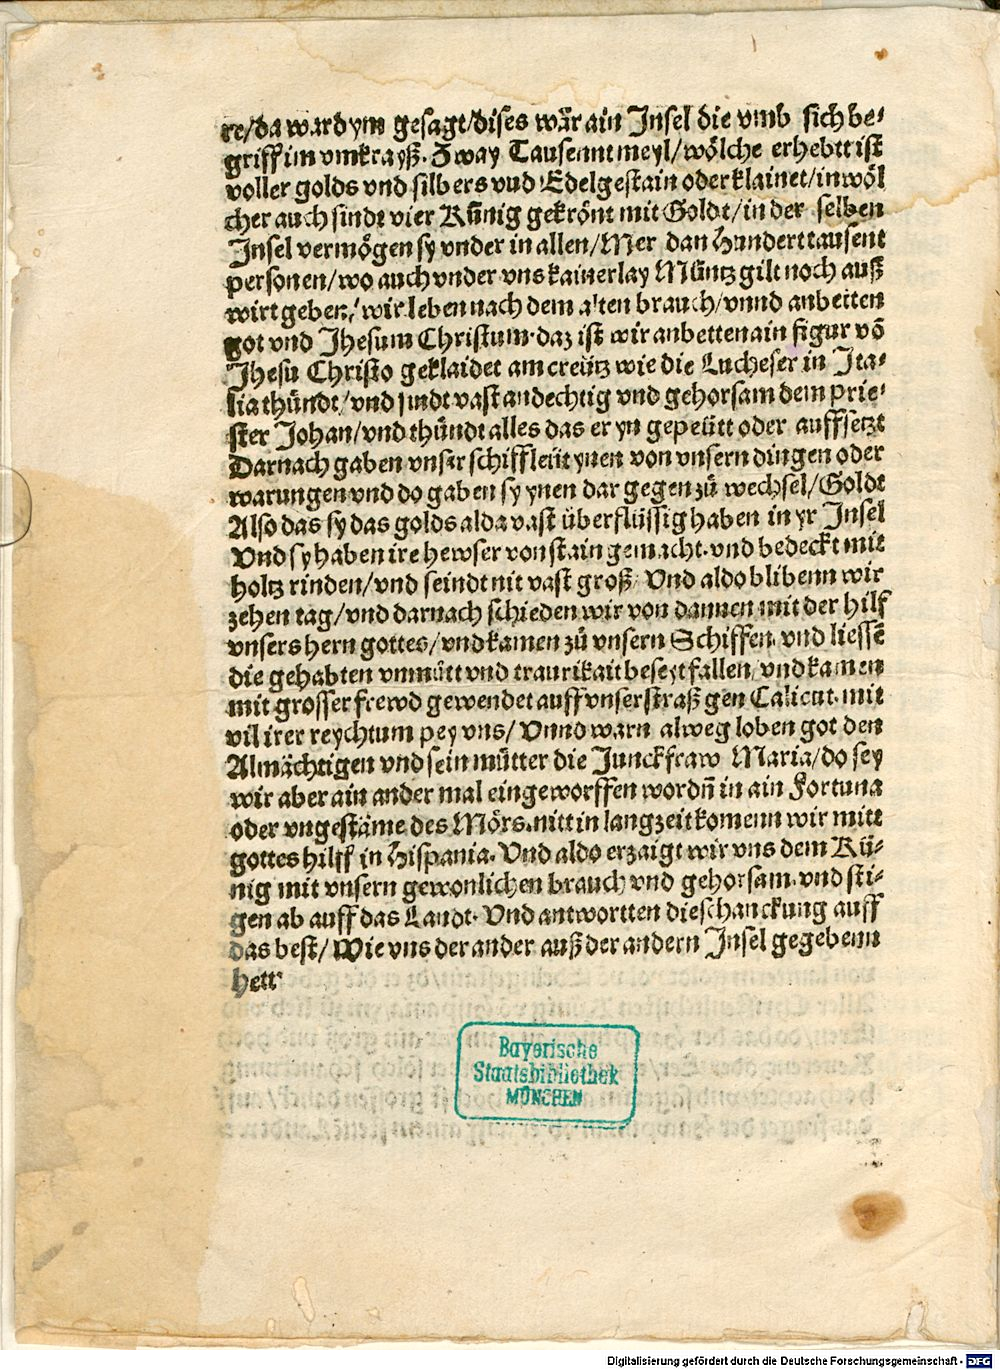 re/da ward ym gesagt/dises wår ain Jnsel die vmb sich be⸗
griff im vmkrayß. Zway Tausennt meyl/wölche erhebtt ist
voller golds vnd silbers vnd Edelgestain oder klainet/in wöl
cher auch sindt vier Kūnig gekrönt mit Goldt/in der selben
Jnsel vermögen sy vnder in allen/Mer dan Hundert tausent
personen/wo auch vnder vns kainerlay Müntz gilt noch auß
wirt geben/wir leben nach dem alten brauch/vnnd anbetten
got vnd Jhesum Christum. daz ist wir anbetten ain figur vō
Jhesu Christo geklaidet am creütz wie die Lucheser in Jta⸗
lia thündt/vnd sindt vast andechtig vnd gehorsam dem prie⸗
ster Johan/vnd thündt alles das er yn gepeütt oder auffsetzt
Darnach gaben vnser schiffleüt ynen von vnsern dingen oder
warungen vnd do gaben sy ynen dar gegen zů wechsel/Goldt
Also das sy das golds alda vast überflüssig haben in yr Jnsel
Vnd sy haben ire hewser von stain gemacht. vnd bedeckt mit
holtz rinden/vnd seindt nit vast groß/ Vnd aldo blibenn wir
zehen tag/vnd darnach schieden wir von dannen mit der hilf
vnsers hern gottes/vnd kamen zů vnsern Schiffen. vnd liessē
die gehabten vnmůtt vnd traurikait beseyt fallen/vnd kamen
mit grosser frewd gewendet auff vnser straß gen Calicut. mit
vil irer reychtum pey vns/ Vnnd warn alweg loben got den
Almächtigen vnd sein mütter die Junckfraw Maria/do sey
wir aber ain ander mal eingeworffen wordn̄ in ain Fortuna
oder vngestäme des Mörs. nitt in langzeit komenn wir mitt
gottes hilff in Hispania. Vnd aldo erzaigt wir vns dem Kü⸗
nig mit vnsern gewonlichen brauch vnd gehorsam. vnd sti⸗
gen ab auff das Landt. Vnd antwortten die schanckung auff
das best/ Wie vns der ander auß der andern Jnsel gegebenn
hett
Bayerische
Staatsbibliothek
MÜNCHEN
Digitalisierung gefördert durch die Deutsche Forschungsgemeinschaft - DFG